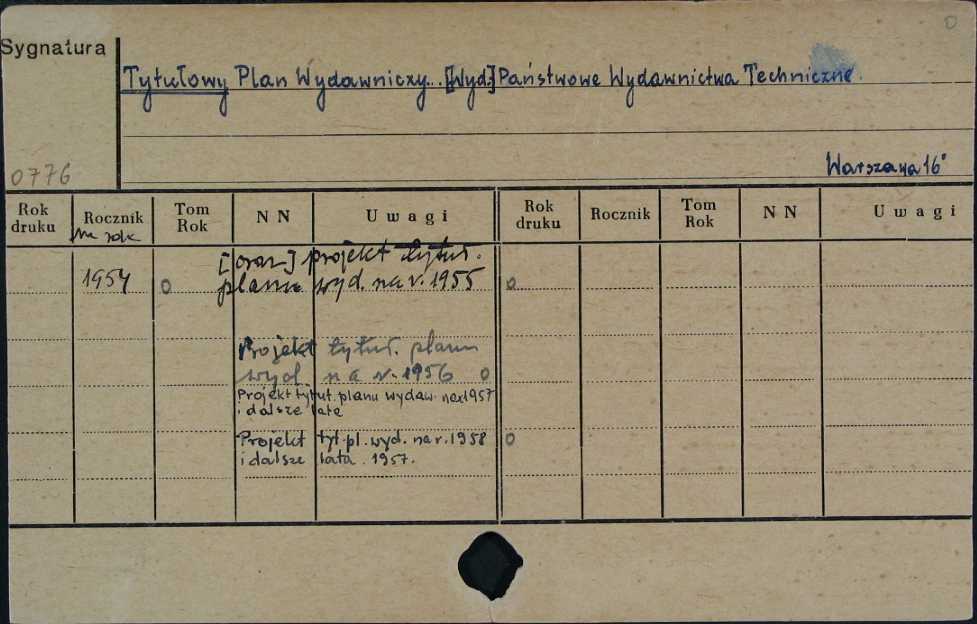 O
Sygnatura
Tytułowy Plan Wydawniczy... [Wyd.] Państwowe Wydawnictwa Techniczne.
Warszawa 16°
0776
Rok druku Rocznik Tom Rok N N Uwagi Rok druku Rocznik Tom Rok N N Uwagi
na rok
[oraz] projekt tytuł.
1954 o planu wyd. na r. 1955 o
Projekt tytuł. planu
wyd. na r. 1956 o
Projekt tytuł. planu wydaw. na r. 1957
i dalsze lata
Projekt tyt. pl. wyd. na r. 1958 o
i dalsze lata. 1957.